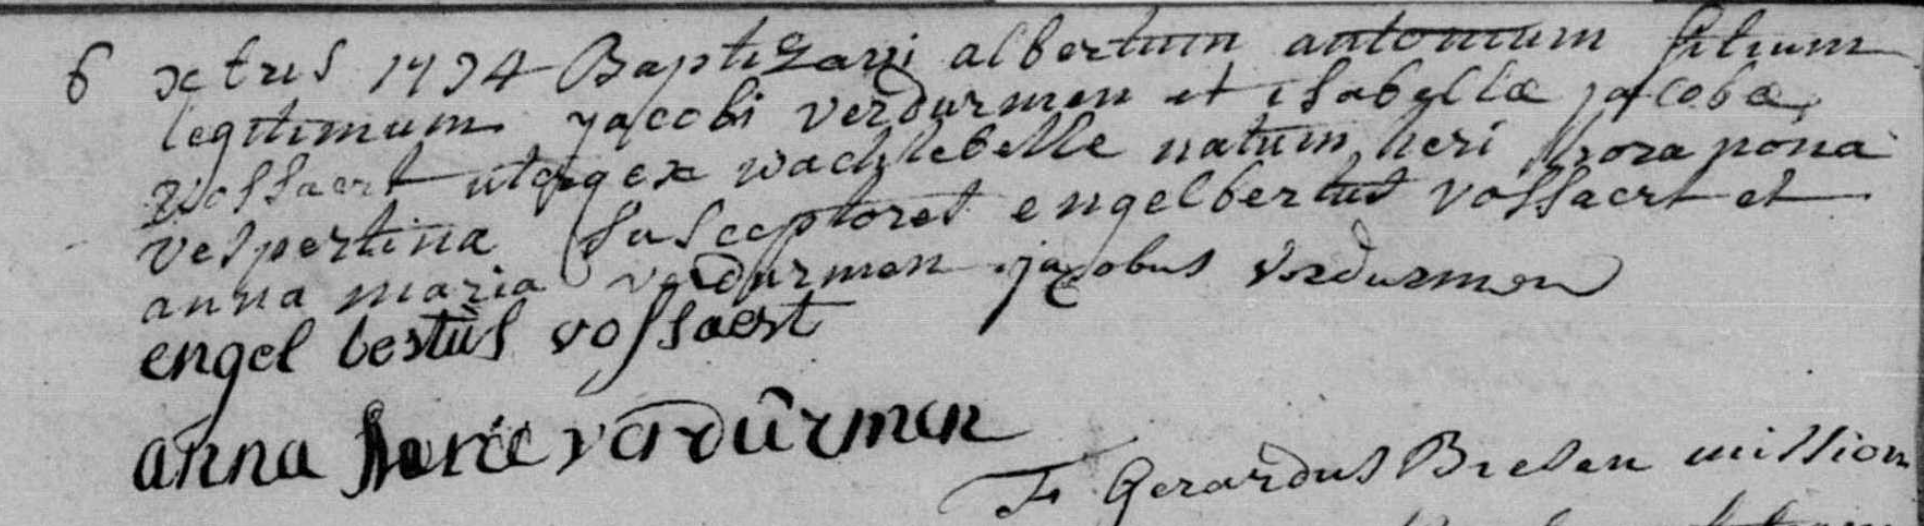 6 xtris 1734 Baptizavi albertum antonium filium
legitimum jacobi verdurmen et isabellæ jacobæ
vossaert uterq ex wachtebeke natum heri hora nona
vespertina susceptores engelbertus vossaert et
anna maria verdurmen jacobus verdurmen
engel bertus vossaert
anna marie verdûrmen
Fr Gerardus Bresen mission